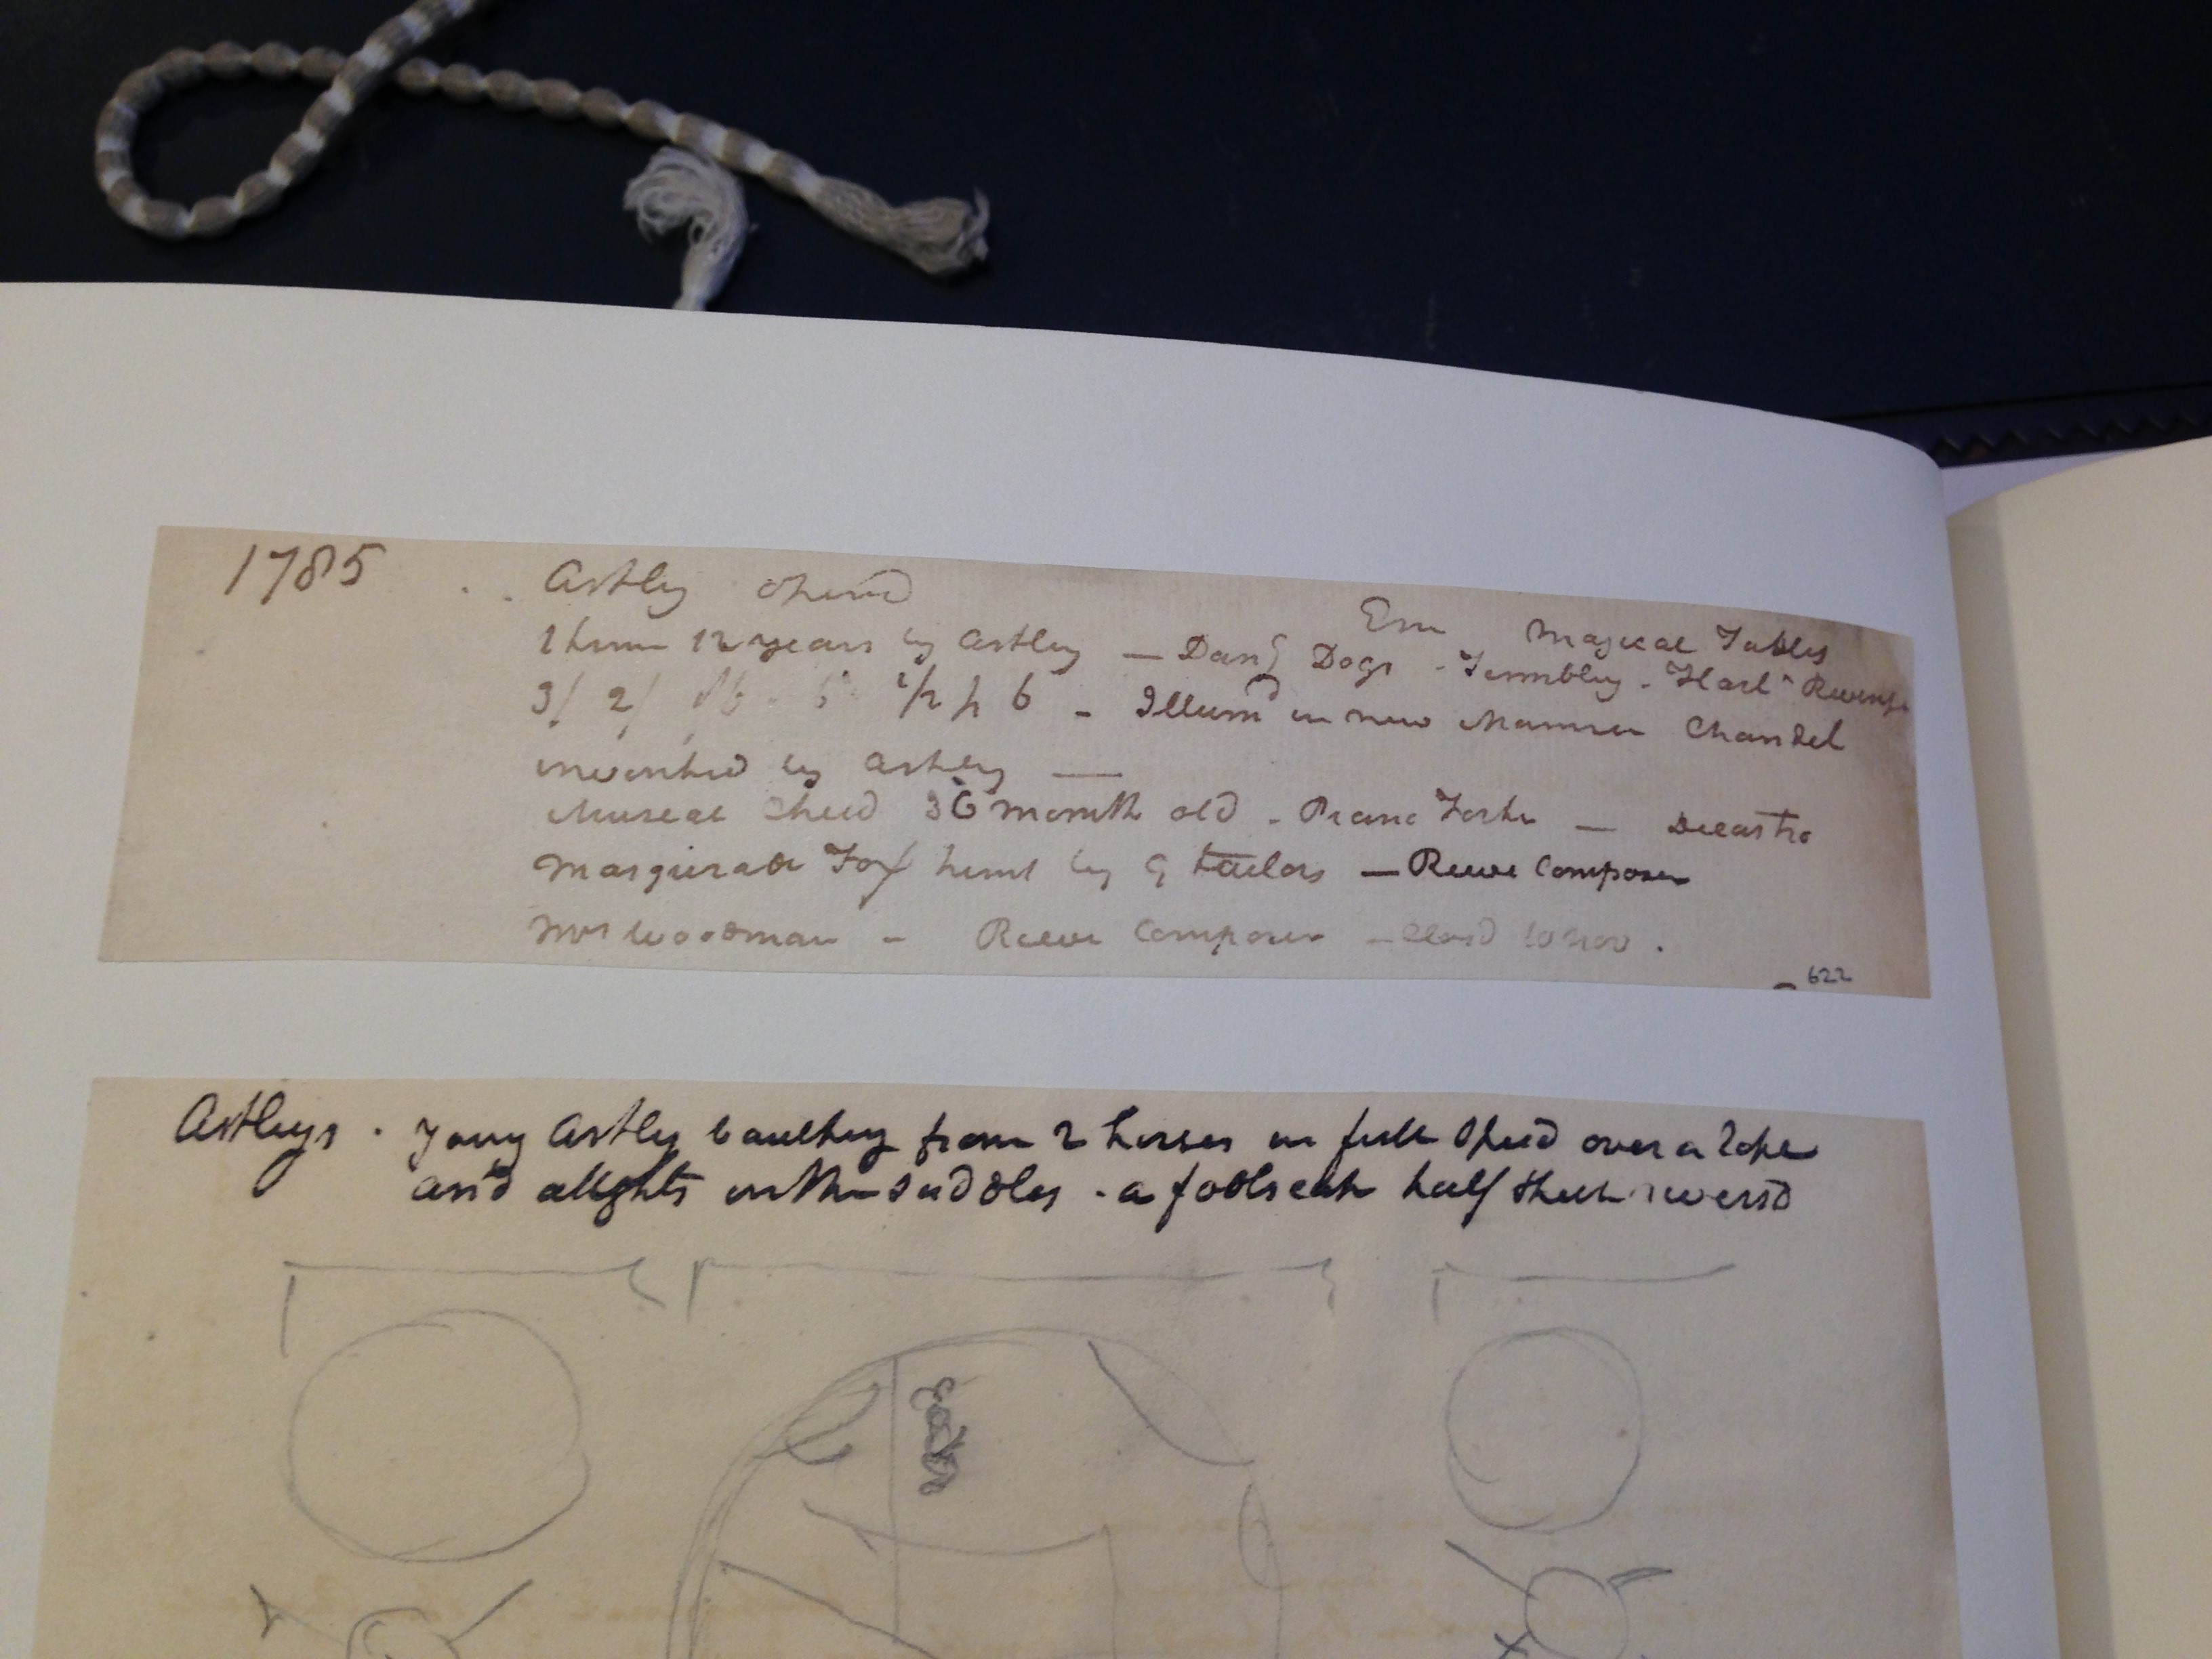 1785 . . Astley opend
Em Magical Tables
12 years by Astley — Dang Dogs - Tumbling - Harl Revenge
3/ 2/ 1/6 . 1/2 p 6 - Illumd in new Manner Chandel
invented by Astley —
Musical Child 36 month old - Piano Forte — Decastro
Masquerade Fox hunt by 9 tailors — Reeve Composer
Mrs Woodman - Reeve Composer - closd 10 nov .
622
Astleys . Young Astley vaulting from 2 horses in full speed over a rope
and alights on the saddles . a fools cap half